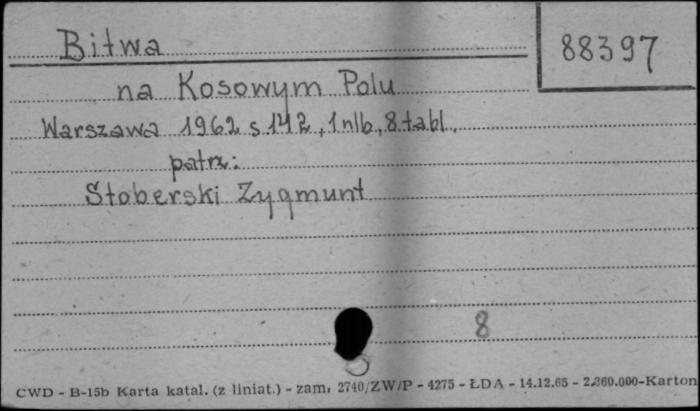 Bitwa
88397
na Kosowym Polu
Warszawa 1962 s 142, 1 nlb, 8 tabl.
patrz:
Stoberski Zygmunt
8
CWD - B-15b Karta katal. (z liniat.) - zam. 2740/ZW/P - 4275 - ŁDA - 14.12.65 - 2.360.000-Karton